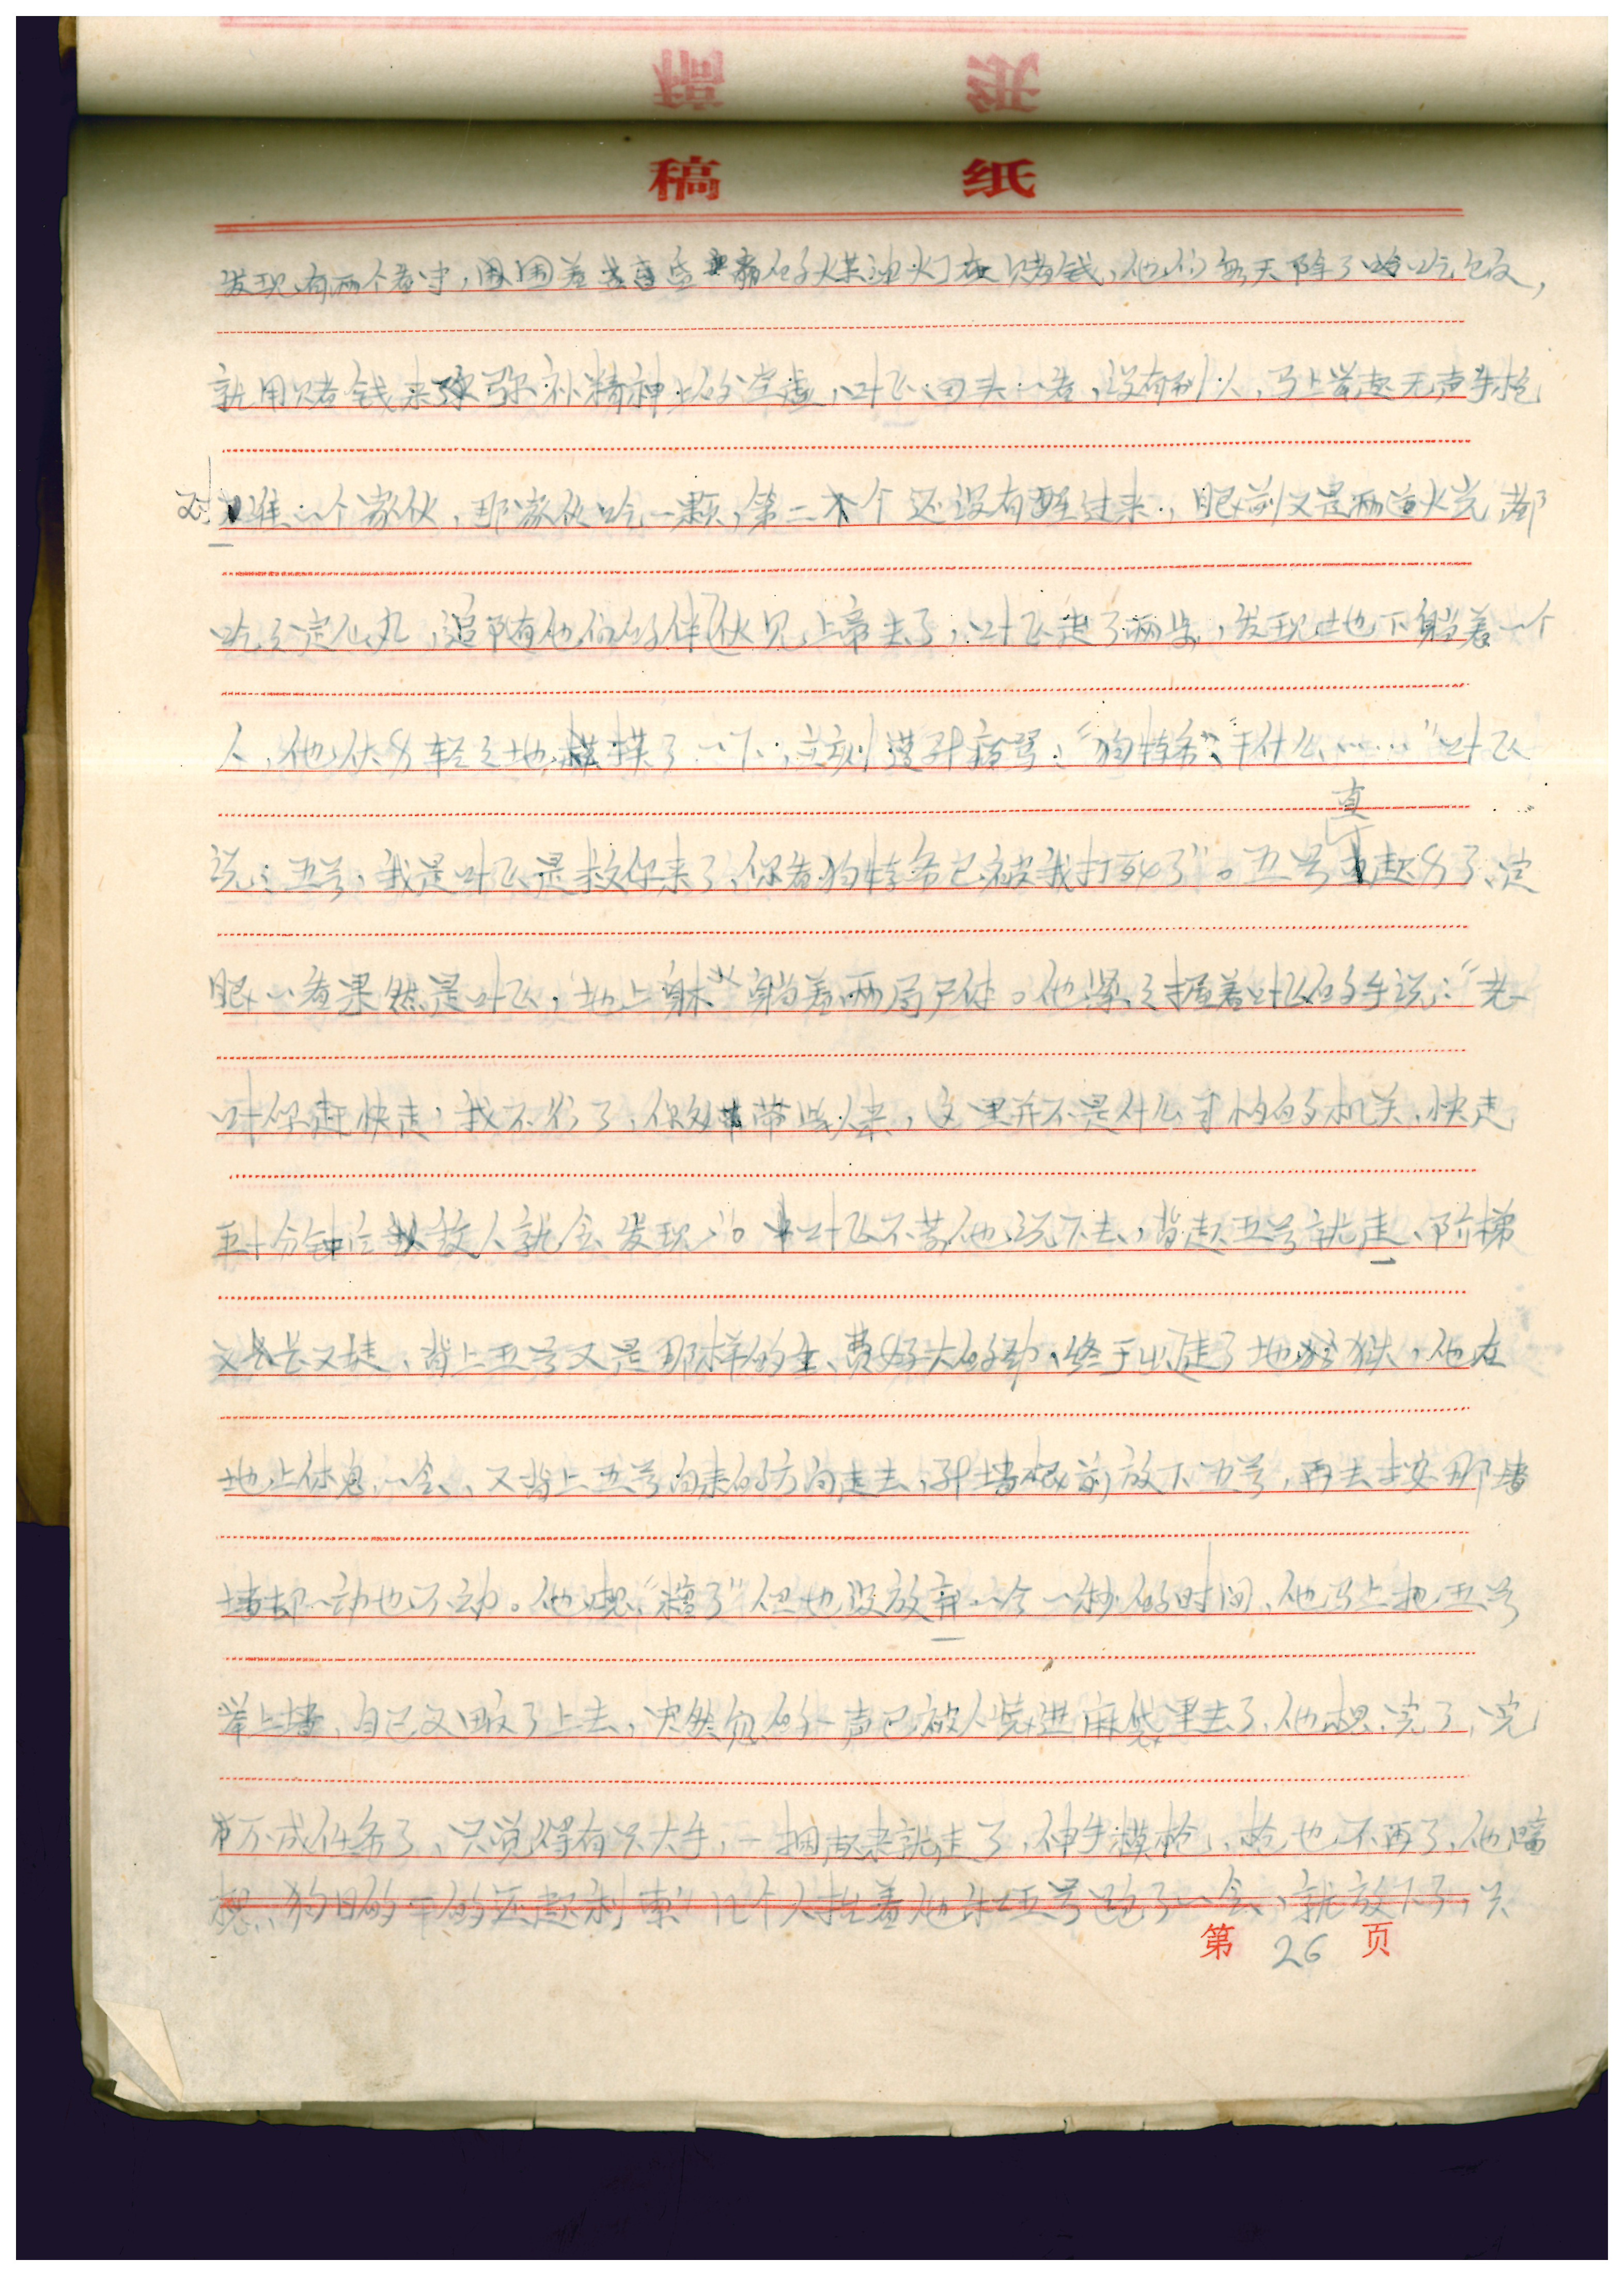 稿 纸
发现有两个看守，围着昏暗的煤油灯在赌钱，他们每天除了吃饭，
就用赌钱来弥补精神上的空虚，叶飞回头一看，没有别人，马上举起无声手枪
对准一个家伙，那家伙吃一颗，第二个还没有醒过来，眼前又是两道火光都
吃了定心丸，追随他们的伴伙见上帝去了，叶飞走了两步，发现地下躺着一个
人，他伏身轻轻地摸了一下，立刻遭到痛骂，“狗特务，干什么……”叶飞
说：五号，我是叶飞是救你来了，你看狗特务已被我打死了”。五号直起身了，定
眼一看果然是叶飞，地上躺着两局尸体。他紧紧握着叶飞的手说：“老
叶你赶快走，我不行了，你多带些人来，这里并不是什么采购的机关，快走
再十分钟后敌人就会发现”。叶飞不等他说下去，背起五号就走，阶梯
又长又陡，背上五号又是那样的重、费好大的劲，终于出了地狱，他在
地上休息一会，又背上五号向来的方向走去，到墙根前放下五号，再去按那墙
墙却一动也不动。他想，“糟了”但也没放弃一分一秒的时间，他马上把五号
举上墙，自己又跟了上去，突然忽的一声已被人装进麻袋里去了，他想，完了，完
不成任务了，只觉得有只大手，一捆起来就走了，伸手摸枪，枪也不再了，他暗
想，狗日的干的还起利索”几个人抬着他和五号跑了一会，就放下了，只
第 26 页